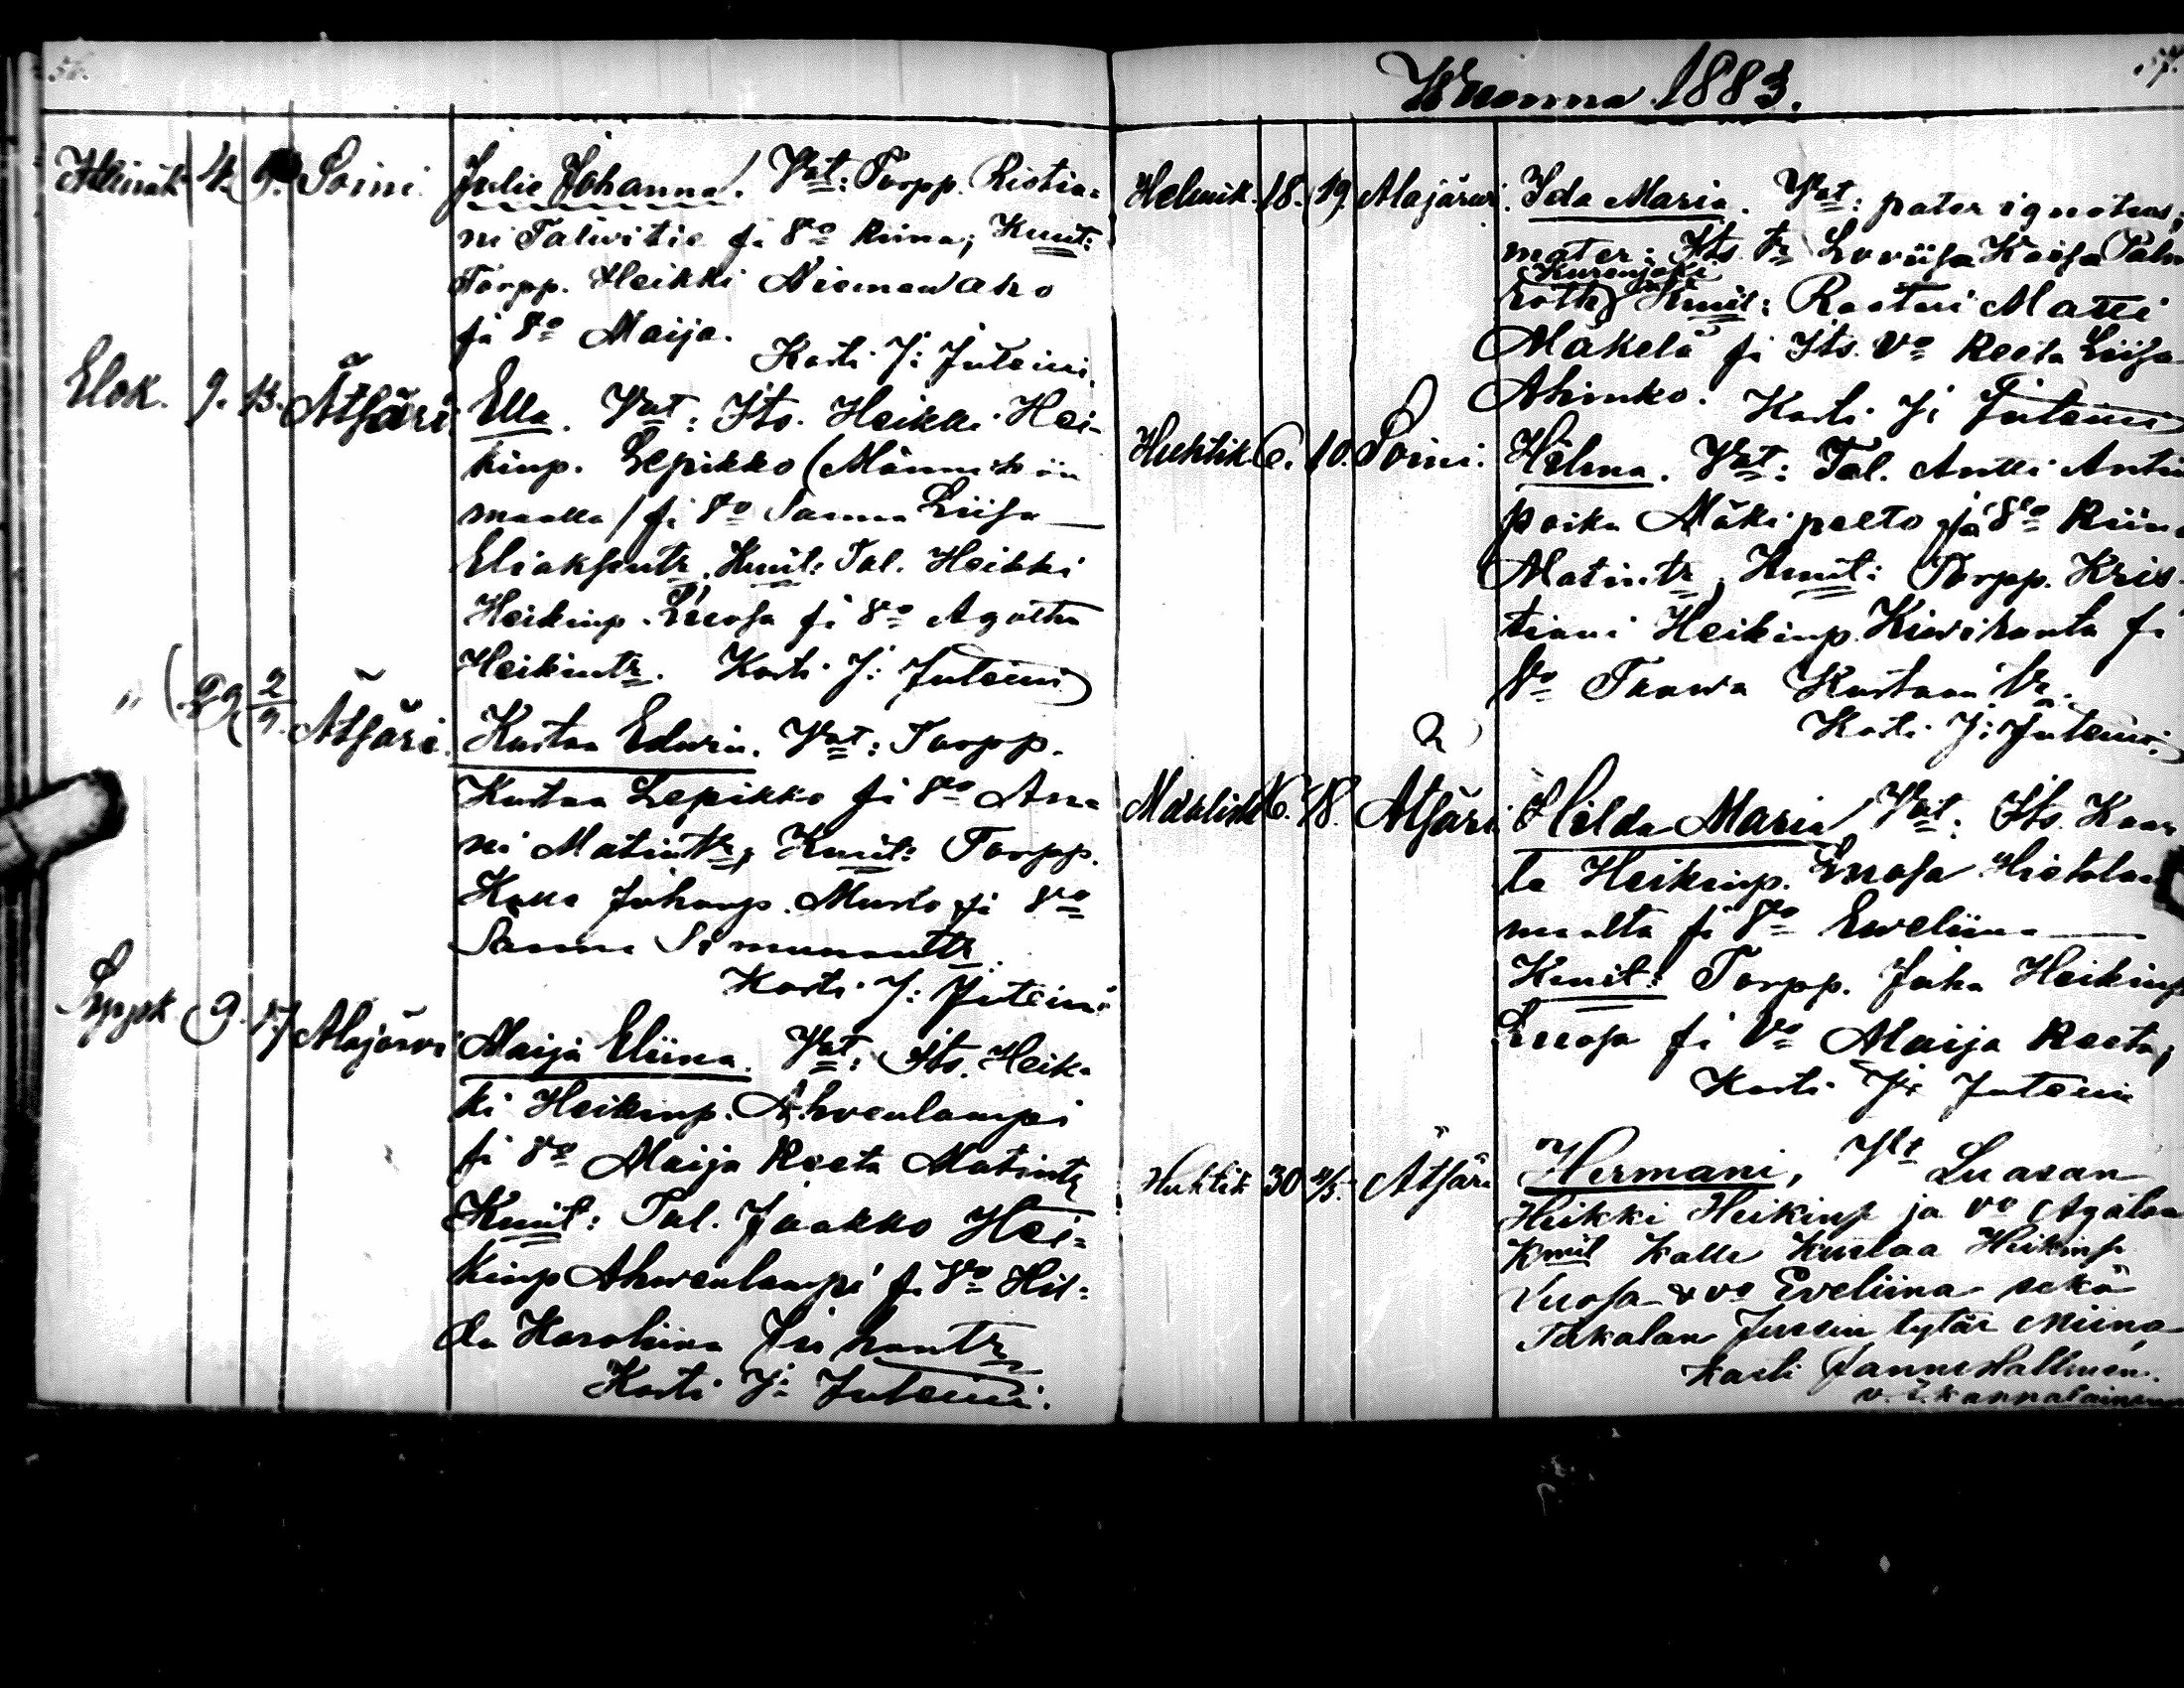 56.
Heinäk 4. 9. Soini. Julie Johanna. Vat: Torpp. Ristia-
ni Talwitie ja vo Riina; Kuut:
Torpp. Heikki Niemenaho
ja vo Maija.
Kasti J: Juteini.
Elok. 9. 13. Ätsäri. Ella. Vat: Its. Heikki Hei-
kinp. Lepikko (Männistön
maalla) ja vo Sanna Liisa
Eliaksentr. Kuut: Tal. Heikki
Heikinp. Luosa ja vo Agatha
Heikintr. Kasti J: Juteini
" 29 2/9. Ätsäri. Kustaa Edwin. Vat: Torpp.
Kustaa Lepikko ja vo An-
ni Matintr; Kuut: Torpp.
Kalle Juhanp. Musto ja vo
Sanna Simunantr.
Kasti J: Juteini
Syysk 9. 17 Alajärvi Maija Eliina. Vat: Its. Heik-
ki Heikinp. Ahvenlampi
ja vo Maija Reeta Matintr
Kuut: Tal. Jaakko Hei-
kinp Ahwenlampi ja vo Hil-
da Karoliina Juhantr
Kasti J: Juteini.
Wuonna 1883.
57.
Helmik. 18. 19. Alajärwi. Ida Maria. Vat: pater ignotus;
mater: Its. tr Loviisa Kaisa Palm
Kurenjoki
roth) Kuut: Raatari Matti
Mäkelä ja Its. vo Reeta Liisa
Ahinko. Kasti J: Juteini
Huhtik 6. 10. Soini. Hilma. Vat: Tal. Antti Antin
poika Mäkipelto ja vo Riina
Matintr, Kuut: Torpp. Kris
tiani Heikinp. Kiviranta ja
vo Taava Kustaan tr.
Kasti J: Juteini.
Maalisk 16. 18. Ätsäri Hilda Maria, Vat: Its. Kaar
la Heikinp. Luosa Hietolan
maalta ja vo Eweliina
Kuut: Torpp. Juha Heikinp
Luosa ja vo Maija Reeta;
Kasti J: Juteini
Huhtik 30 Ätsäri Hermani, Vt Luasan
Heikki Heikinp ja vo Agatan
Kuut Kalle Kustaa Heikinp
Luosa & vo Eveliina sekä
Takalan Jussin tytär Miina
Kasti Janne Hallman.
v. t. kappalainen